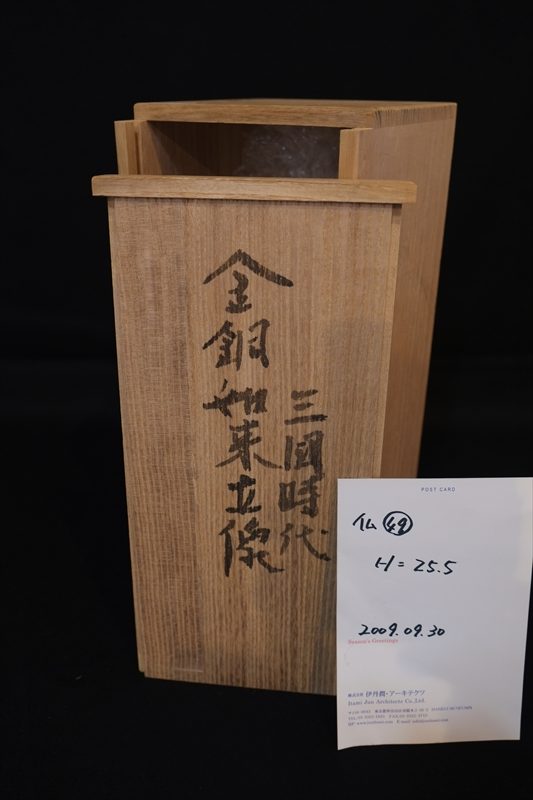 三國時代
金銅如来立像
POST CARD
仏 49
H = 25.5
2009.09.30
Season's Greetings
株式会社 伊丹潤・アーキテクツ
Itami Jun Architects Co.,Ltd.